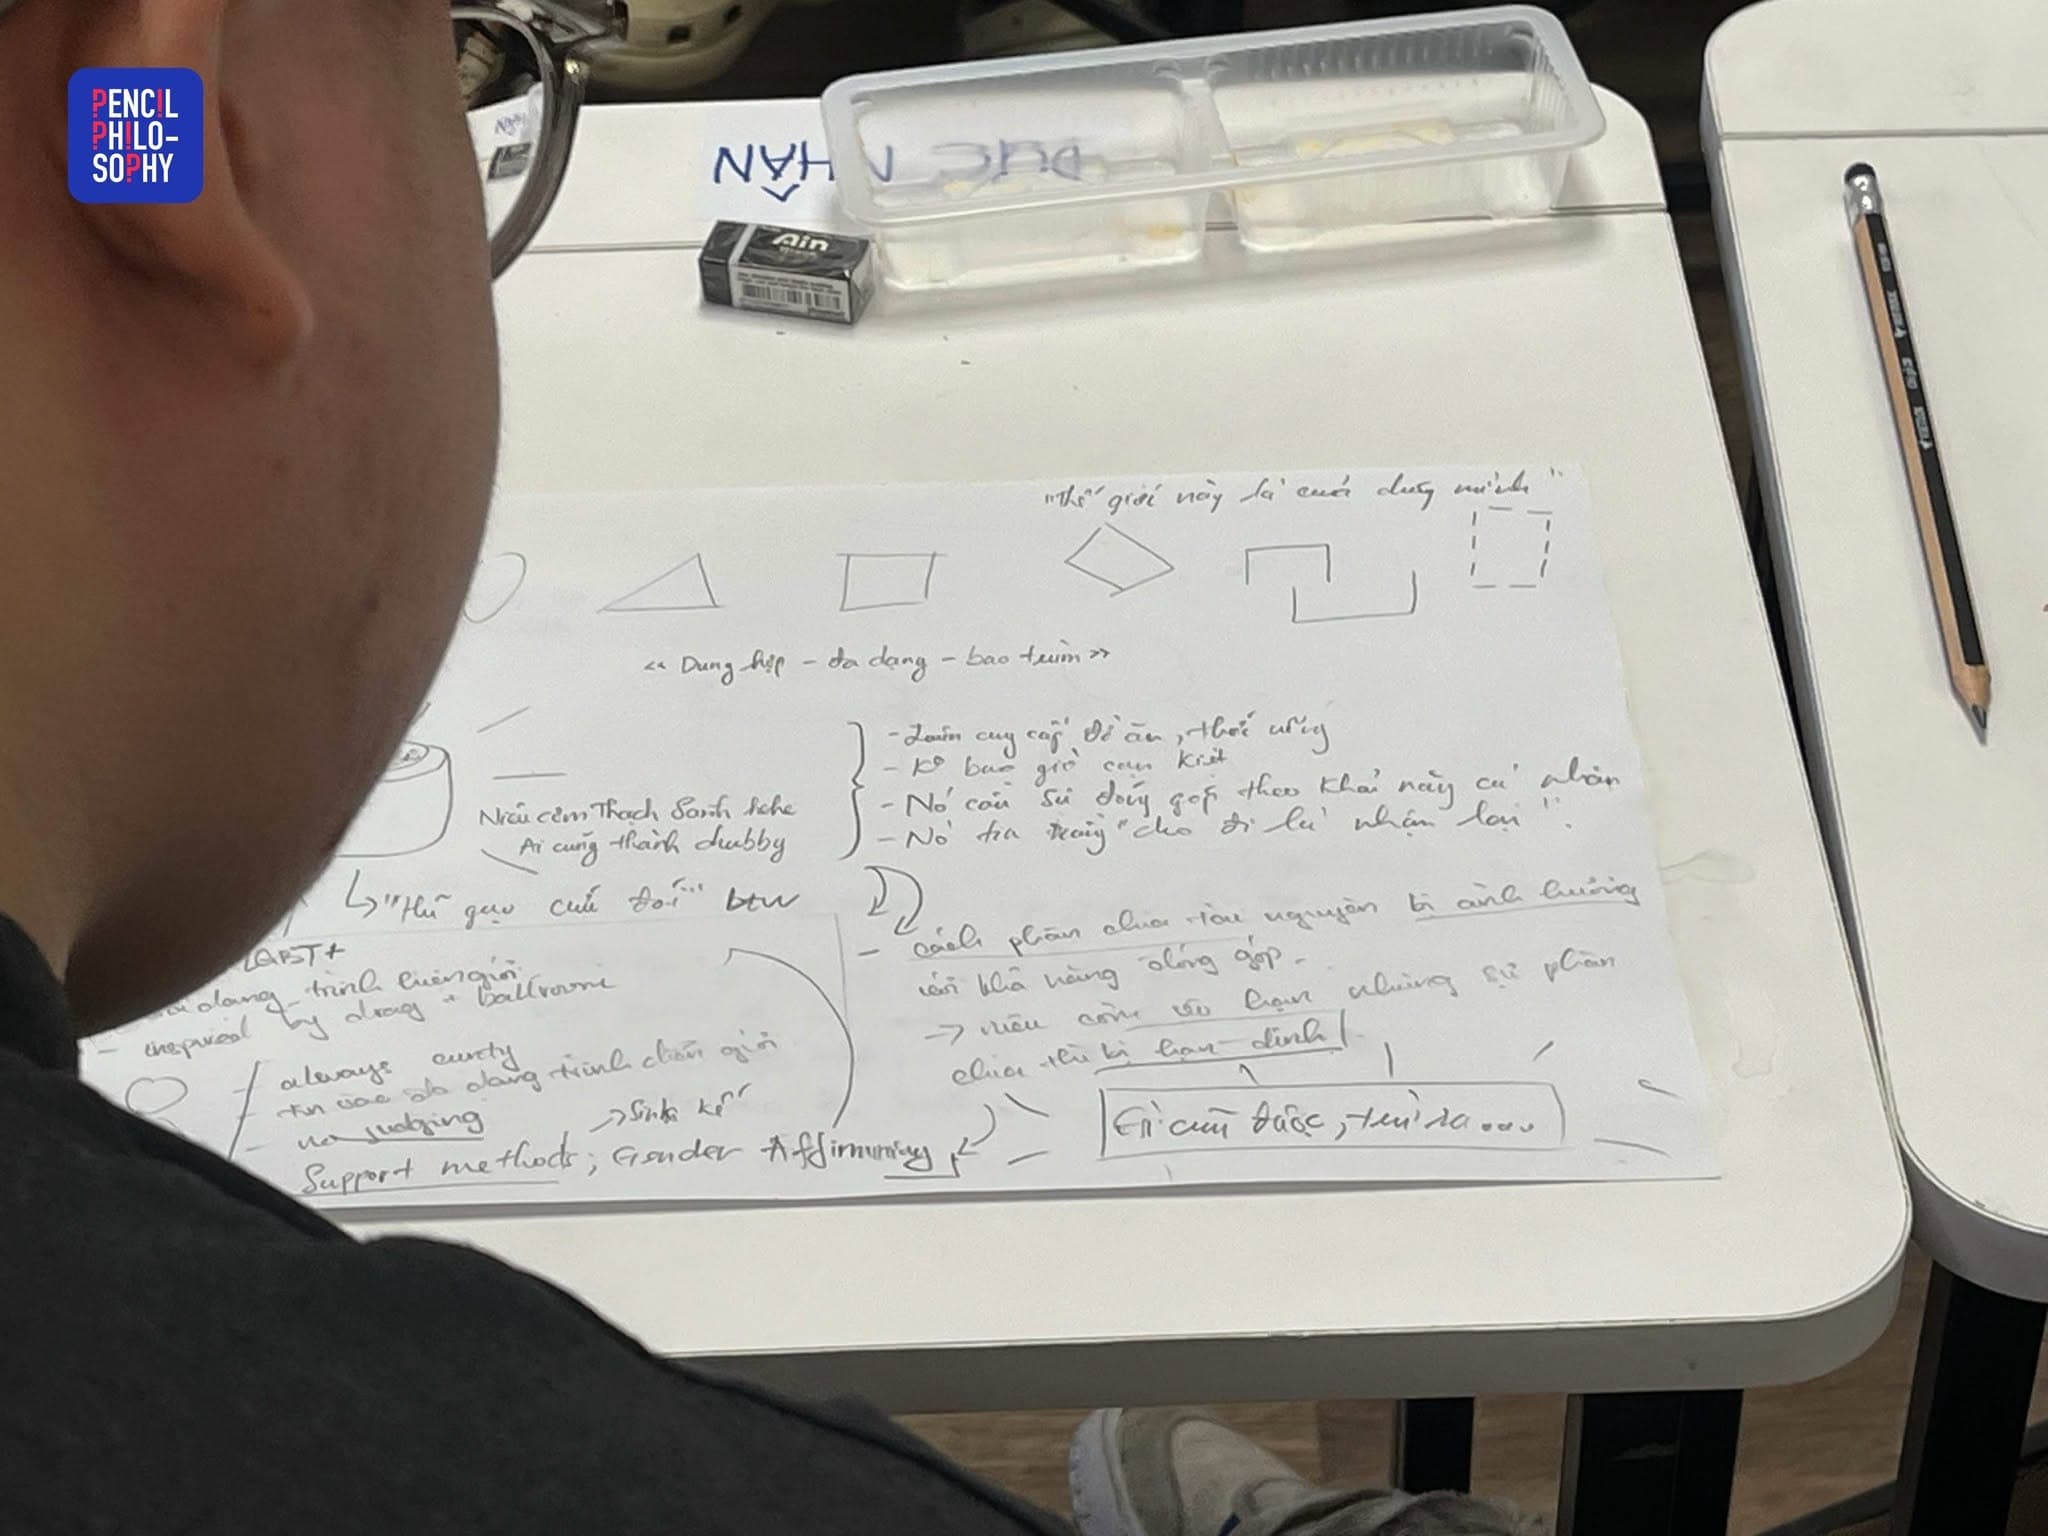 PENCIL
PHILO-
SOPHY
ĐỨC NHÂN
Ain
"Thế giới này là của chúng mình"
<< Dung hợp – đa dạng – bao trùm >>
- Luôn cung cấp đồ ăn, thức uống
- Ko bao giờ cạn kiệt
- Nó cần sự đóng góp theo khả năng cá nhân
- Nó "cho đi là nhận lại".
Niêu cơm Thạch Sanh
Ai cũng thành chubby
"Hũ gạo cứu đói" btw
- cách phân chia tài nguyên bị ảnh hưởng
bởi khả năng đóng góp.
→ niêu cơm vô hạn nhưng sự phân
chia thì bị hạn định
LGBT+
đa dạng trình
- inspired by drag + ballroom
- always cunty
- đa dạng trình diễn giới
- no judging
→ Sinh kế
Support methods; Gender Affirming
Gì cũng được, trừ ra....